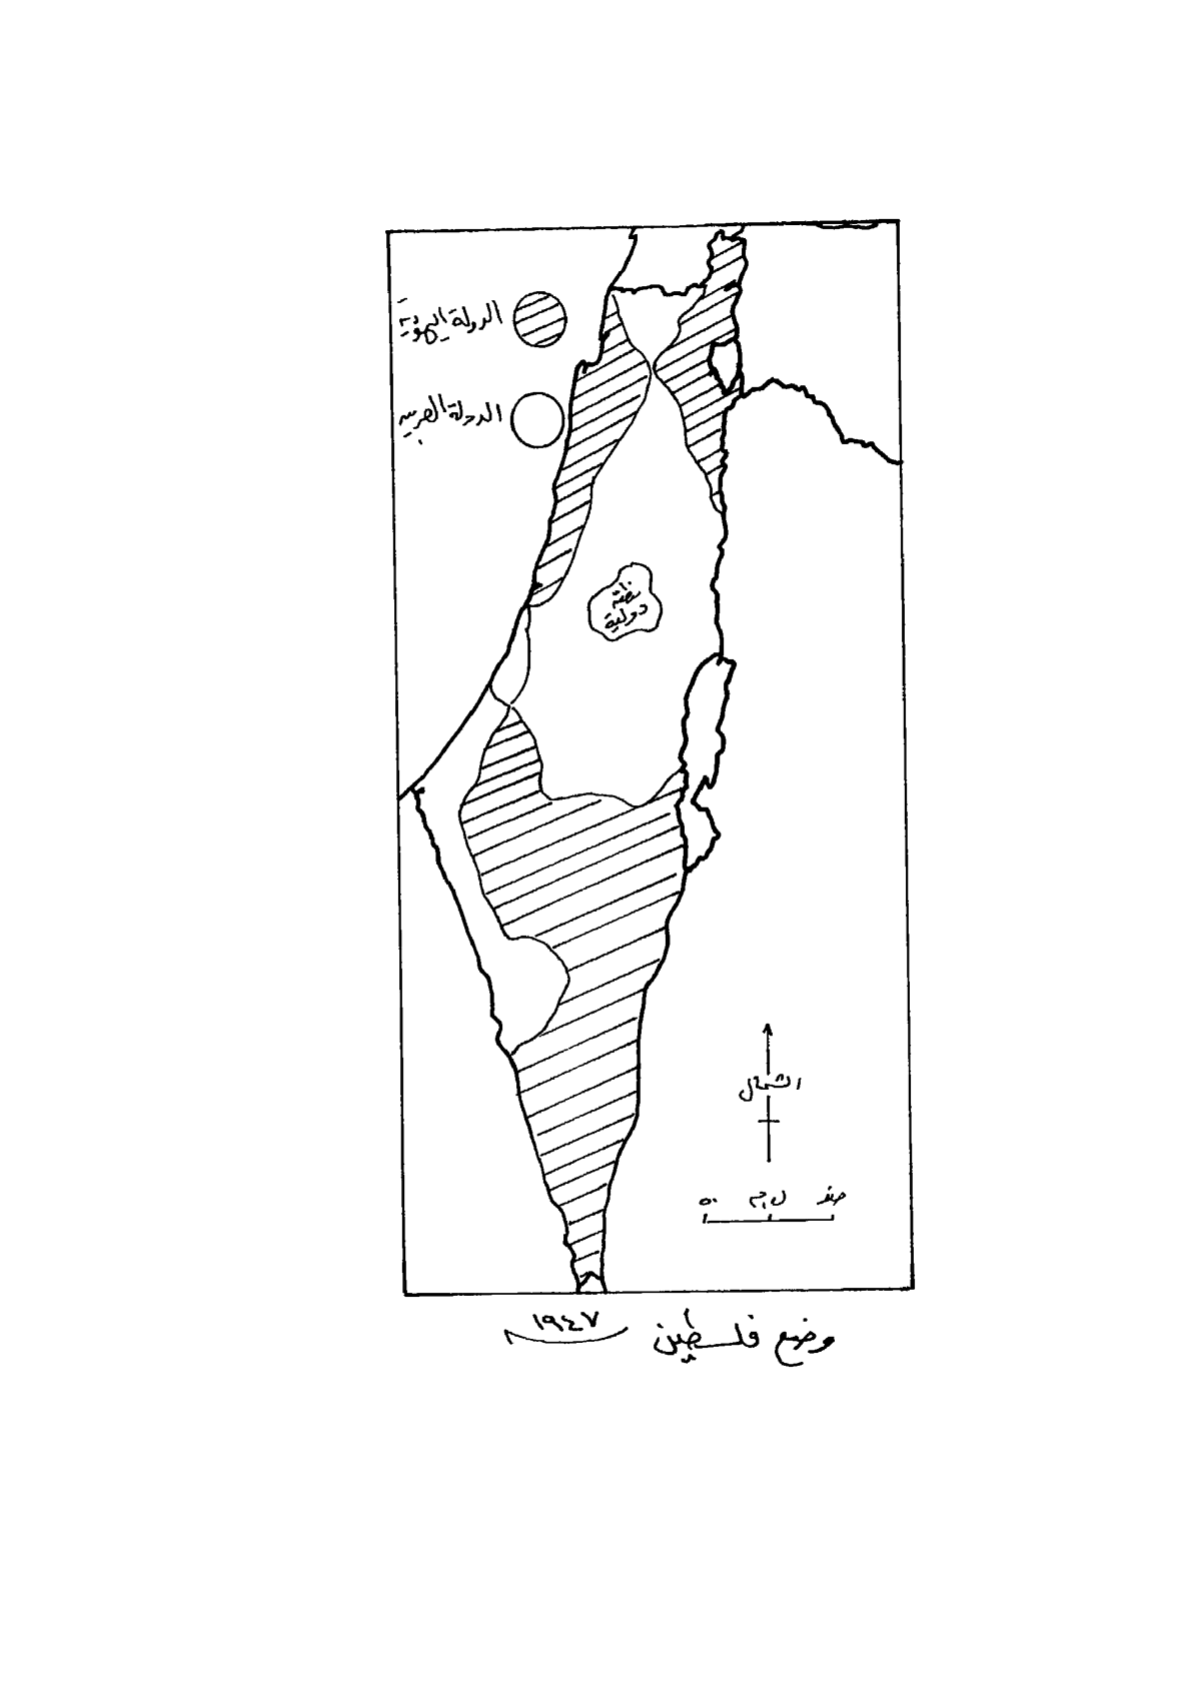 الدولة اليهودية
الدولة العربية
منطقة
دولية
الشمال
صفر ٥٠
وضع فلسطين ١٩٤٧